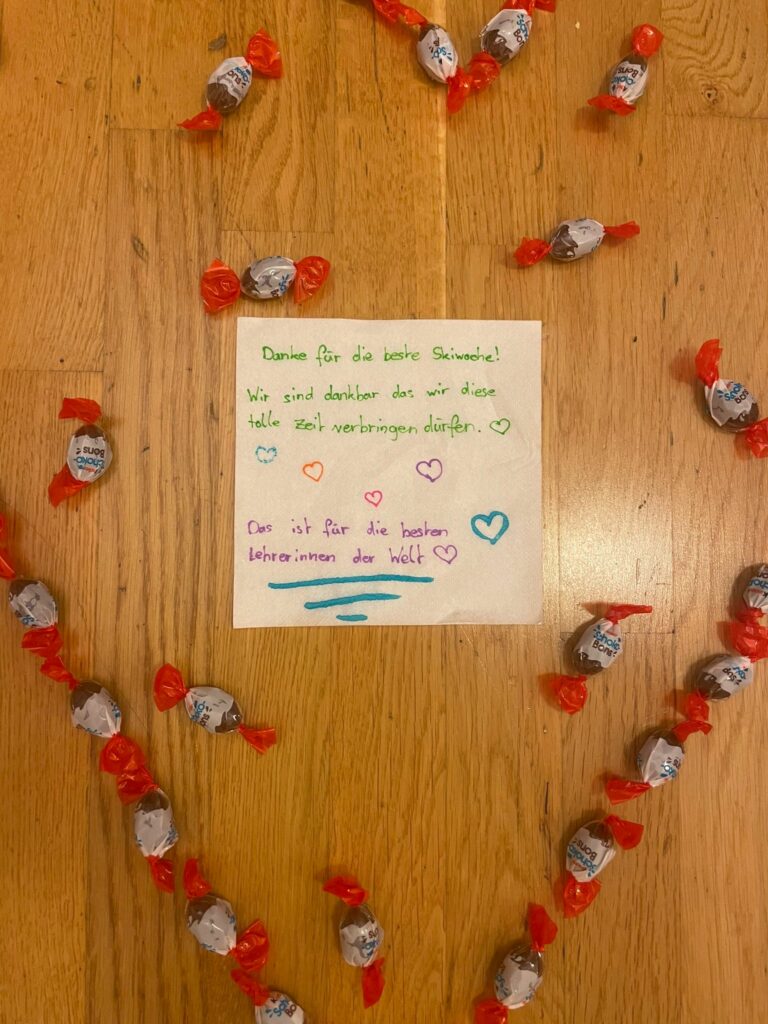 Danke für die beste Skiwoche!
Wir sind dankbar das wir diese
tolle Zeit verbringen dürfen.
Das ist für die besten
Lehrerinnen der Welt
Schoko-
Bons